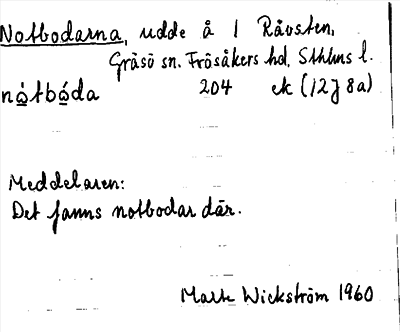 Notbodarna, udde å 1 Råvsten,
Gräsö sn. Frösåkers hd. Sthlms l.
nò̤tbó̤da 204 ek (12J8a)
Meddelaren:
Det fanns notbodar där.
Wickström 1960